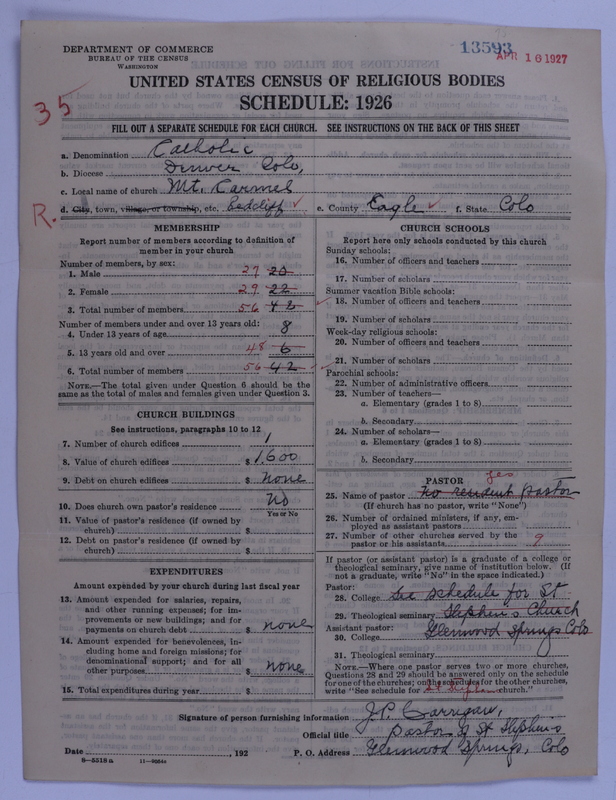 13593
APR 16 1927
DEPARTMENT OF COMMERCE
BUREAU OF THE CENSUS
WASHINGTON
UNITED STATES CENSUS OF RELIGIOUS BODIES
SCHEDULE: 1926
35
FILL OUT A SEPARATE SCHEDULE FOR EACH CHURCH. SEE INSTRUCTIONS ON THE BACK OF THIS SHEET
a. Denomination Catholic
b. Diocese Denver Colo,
c. Local name of church Mt. Carmel
R.
d. City, town, village, or township, etc. Redcliff e. County Eagle f. State Colo
MEMBERSHIP
Report number of members according to definition of member in your church
Number of members, by sex:
1. Male 27 20
2. Female 29 22
3. Total number of members 56 42
Number of members under and over 13 years old:
4. Under 13 years of age 8
5. 13 years old and over 48 6
6. Total number of members 56 42
NOTE.—The total given under Question 6 should be the same as the total of males and females given under Question 3.
CHURCH BUILDINGS
See instructions, paragraphs 10 to 12
7. Number of church edifices 1
8. Value of church edifices $ 1,600
9. Debt on church edifices $ none
10. Does church own pastor's residence no
Yes or No
11. Value of pastor's residence (if owned by church) $
12. Debt on pastor's residence (if owned by church) $
EXPENDITURES
Amount expended by your church during last fiscal year
13. Amount expended for salaries, repairs, and other running expenses; for improvements or new buildings; and for payments on church debt $ none
14. Amount expended for benevolences, including home and foreign missions; for denominational support; and for all other purposes $ none
15. Total expenditures during year $
CHURCH SCHOOLS
Report here only schools conducted by this church
Sunday schools:
16. Number of officers and teachers
17. Number of scholars
Summer vacation Bible schools:
18. Number of officers and teachers
19. Number of scholars
Week-day religious schools:
20. Number of officers and teachers
21. Number of scholars
Parochial schools:
22. Number of administrative officers
23. Number of teachers—
a. Elementary (grades 1 to 8)
b. Secondary
24. Number of scholars—
a. Elementary (grades 1 to 8)
b. Secondary
PASTOR
yes
25. Name of pastor No resident pastor
(If church has no pastor, write "None")
26. Number of ordained ministers, if any, employed as assistant pastors
27. Number of other churches served by the pastor or his assistants 9
If pastor (or assistant pastor) is a graduate of a college or theological seminary, give name of institution below. (If not a graduate, write "No" in the space indicated.)
Pastor:
28. College See schedule for St
29. Theological seminary Stephen's Church
Assistant pastor:
30. College Glenwood Springs Colo
31. Theological seminary
NOTE.—Where one pastor serves two or more churches, Questions 28 and 29 should be answered only on the schedule for one of the churches; on the schedules for the other churches, write "See schedule for St Stephens church."
Signature of person furnishing information J.P. Carrigan,
Official title Pastor of St Stephen's
Date , 192 P. O. Address Glenwood Springs, Colo
8—5518a 11—9684